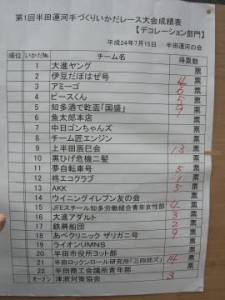 第1回半田運河手づくりいかだレース大会成績表
【デコレーション部門】
平成24年7月15日 半田運河の会
順位 いかだ№ チーム名 得票数
1 大進ヤング 票
2 伊豆だほはぜ号 4票
3 アミーゴ 票
4 ピースくん 5票
5 知多酒で乾盃「国盛」 9票
6 魚太郎本店 票
7 中日ゴンちゃんズ 票
8 チーム匠エンジン 票
9 上半田辰巳会 13票
10 黒ひげ危機二髪 票
11 夢自転車号 5票
12 袴エコクラブ 票
13 AKK 5票
14 ウイニングレイブン友の会 票
15 JFEスチール知多労働組合青年女性部 4票
16 大進アダルト 3票
17 鉄勝船団 票
18 あべクリニック ザリガニ号 9票
19 ライオンUMNS 票
20 半田市役所ヨット部 票
21 半田ロックンロール研究所「三四郎X」 14票
22 半田商工会議所青年部 票
オープン 津波対策協会 3